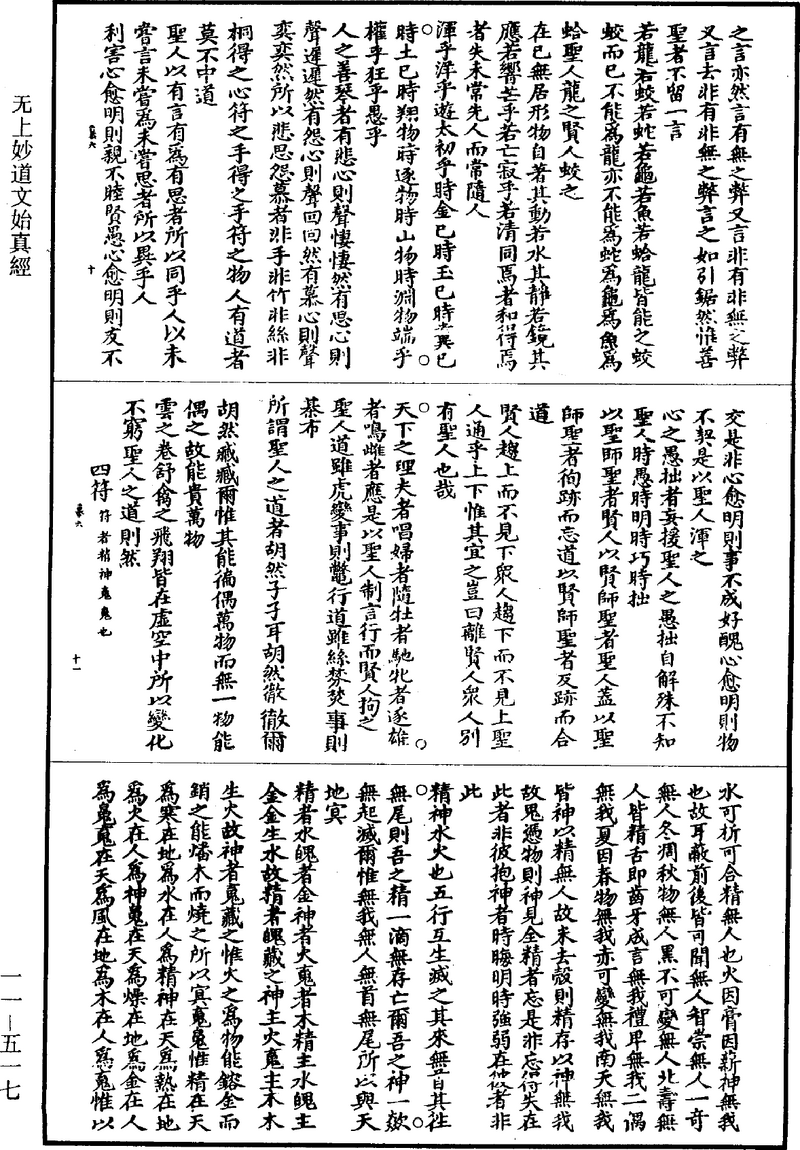 之言亦然言有無之弊又言非有非無之弊
又言去非有非無之弊言之如引鋸然惟善
聖者不留一言
若龍若蛟若蛇若龜若魚若蛤龍皆能之蛟
蛟而已不能為龍亦不能為蛇為龜為魚為
蛤聖人龍之賢人蛟之
在已無居形物自著其動若水其靜若鏡其
應若響芒乎若亡寂乎若清同焉者和得焉
者失未常先人而常隨人
渾乎洋乎遊太初乎時金已時玉已時糞已
時土已時翔物時逐物時山物時淵物端乎
權乎狂乎愚乎
人之善琴者有悲心則聲悽悽然有思心則
聲遲遲然有怨心則聲回回然有慕心則聲
奕奕然所以悲思怨慕者非手非竹非絲非
桐得之心符之手得之手符之物人有道者
莫不中道
聖人以有言有為有思者所以同乎人以未
嘗言未嘗為未嘗思者所以異乎人
利害心愈明則親不睦賢愚心愈明則友不
慕六
十
交是非心愈明則事不成好醜心愈明則物
不契是以聖人渾之
心之愚拙者妄援聖人之愚拙自解殊不知
聖人時愚時明時巧時拙
以聖師聖者賢人以賢師聖者聖人蓋以聖
師聖者徇跡而忘道以賢師聖者反跡而合
道
賢人趨上而不見下衆人趨下而不見上聖
人通乎上下惟其宜之豈曰離賢人衆人別
有聖人也哉
天下之理夫者唱婦者隨牡者馳牝者逐雄
者鳴雌者應是以聖人制言行而賢人拘之
聖人道雖虎變事則鼈行道雖絲棼事則
棊布
所謂聖人之道者胡然孑孑耳胡然徹徹爾
胡然臧臧爾惟其能徧偶萬物而無一物能
偶之故能貴萬物
雲之卷舒禽之飛翔皆在虛空中所以變化
不窮聖人之道則然
四符 符者精神魂魄也
慕六
十一
水可析可合精無人也火因膏因薪神無我
也故耳蔽前後皆可聞無人智崇無人一奇
無人冬凋秋物無人黑不可變無人北壽無
人皆精舌即齒牙成言無我禮卑無我二偶
無我夏因春物無我赤可變無我南夭無我
皆神以精無人故米去殼則精存以神無我
故鬼憑物則神見全精者忘是非忘得失在
此者非彼抱神者時晦明時強弱在彼者非
此
精神水火也五行互生滅之其來無首其往
無尾則吾之精一滴無存亡爾吾之神一欻
無起滅爾惟無我無人無首無尾所以與天
地冥
精者水魄者金神者火魂者木精主水魄主
金金生水故精者魄藏之神主火魂主木木
生火故神者魂藏之惟火之為物能鎔金而
銷之能燔木而燒之所以冥魂魄惟精在天
為寒在地為水在人為精神在天為熱在地
為火在人為神魄在天為燥在地為金在人
為魄魂在天為風在地為木在人為魂惟以
无上妙道文始真經
一一—五一七